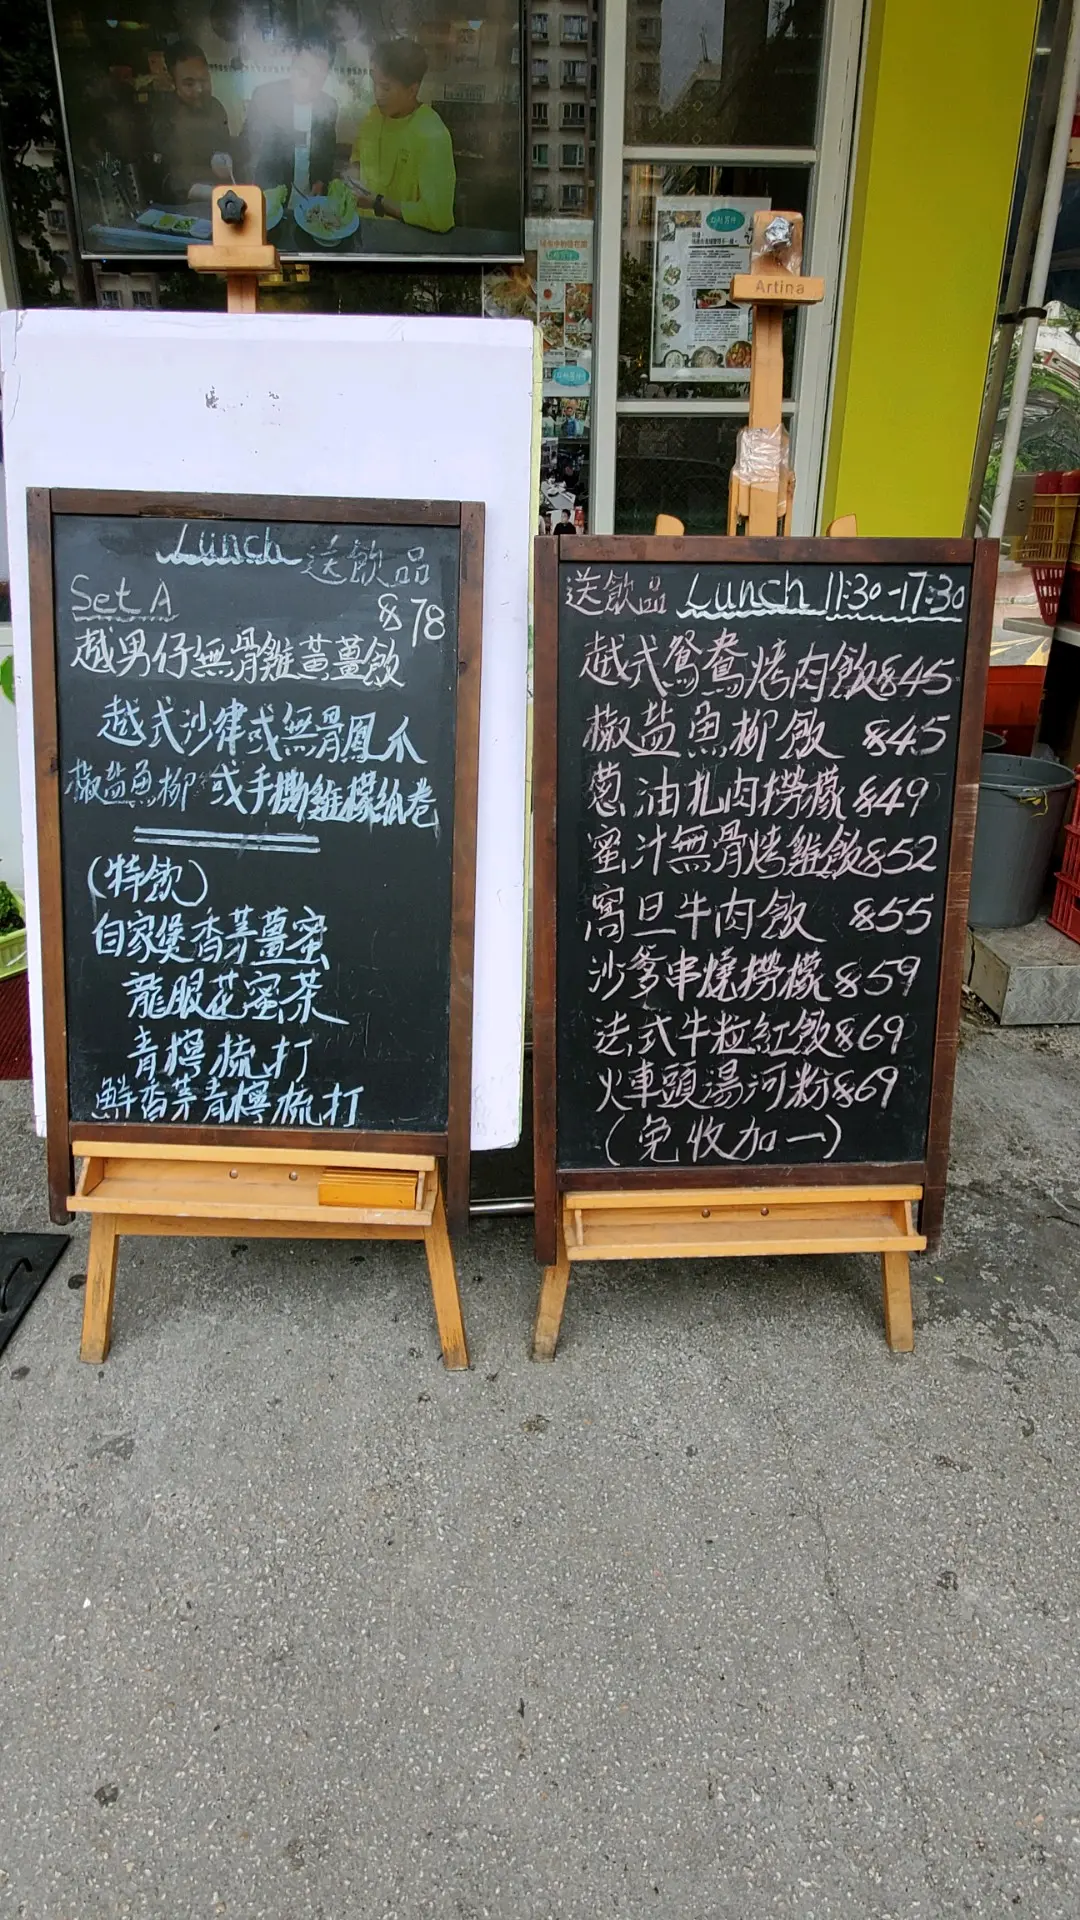 Artina
Lunch 送飲品
Set A $78
越男仔無骨雞黃薑飯
越式沙律或無骨鳳爪
椒盐魚柳 或手撕雞檬紙卷
(特飲)
自家煲香茅薑蜜
龍眼花蜜茶
青檸梳打
鮮香茅青檸梳打
送飲品 Lunch 11:30-17:30
越式鴛鴦烤肉飯$45
椒盐魚柳飯 $45
葱油扎肉撈檬$49
蜜汁無骨烤雞飯$52
窩旦牛肉飯 $55
沙爹串燒撈檬$59
法式牛粒紅飯$69
火車頭湯河粉$69
(免收加一)